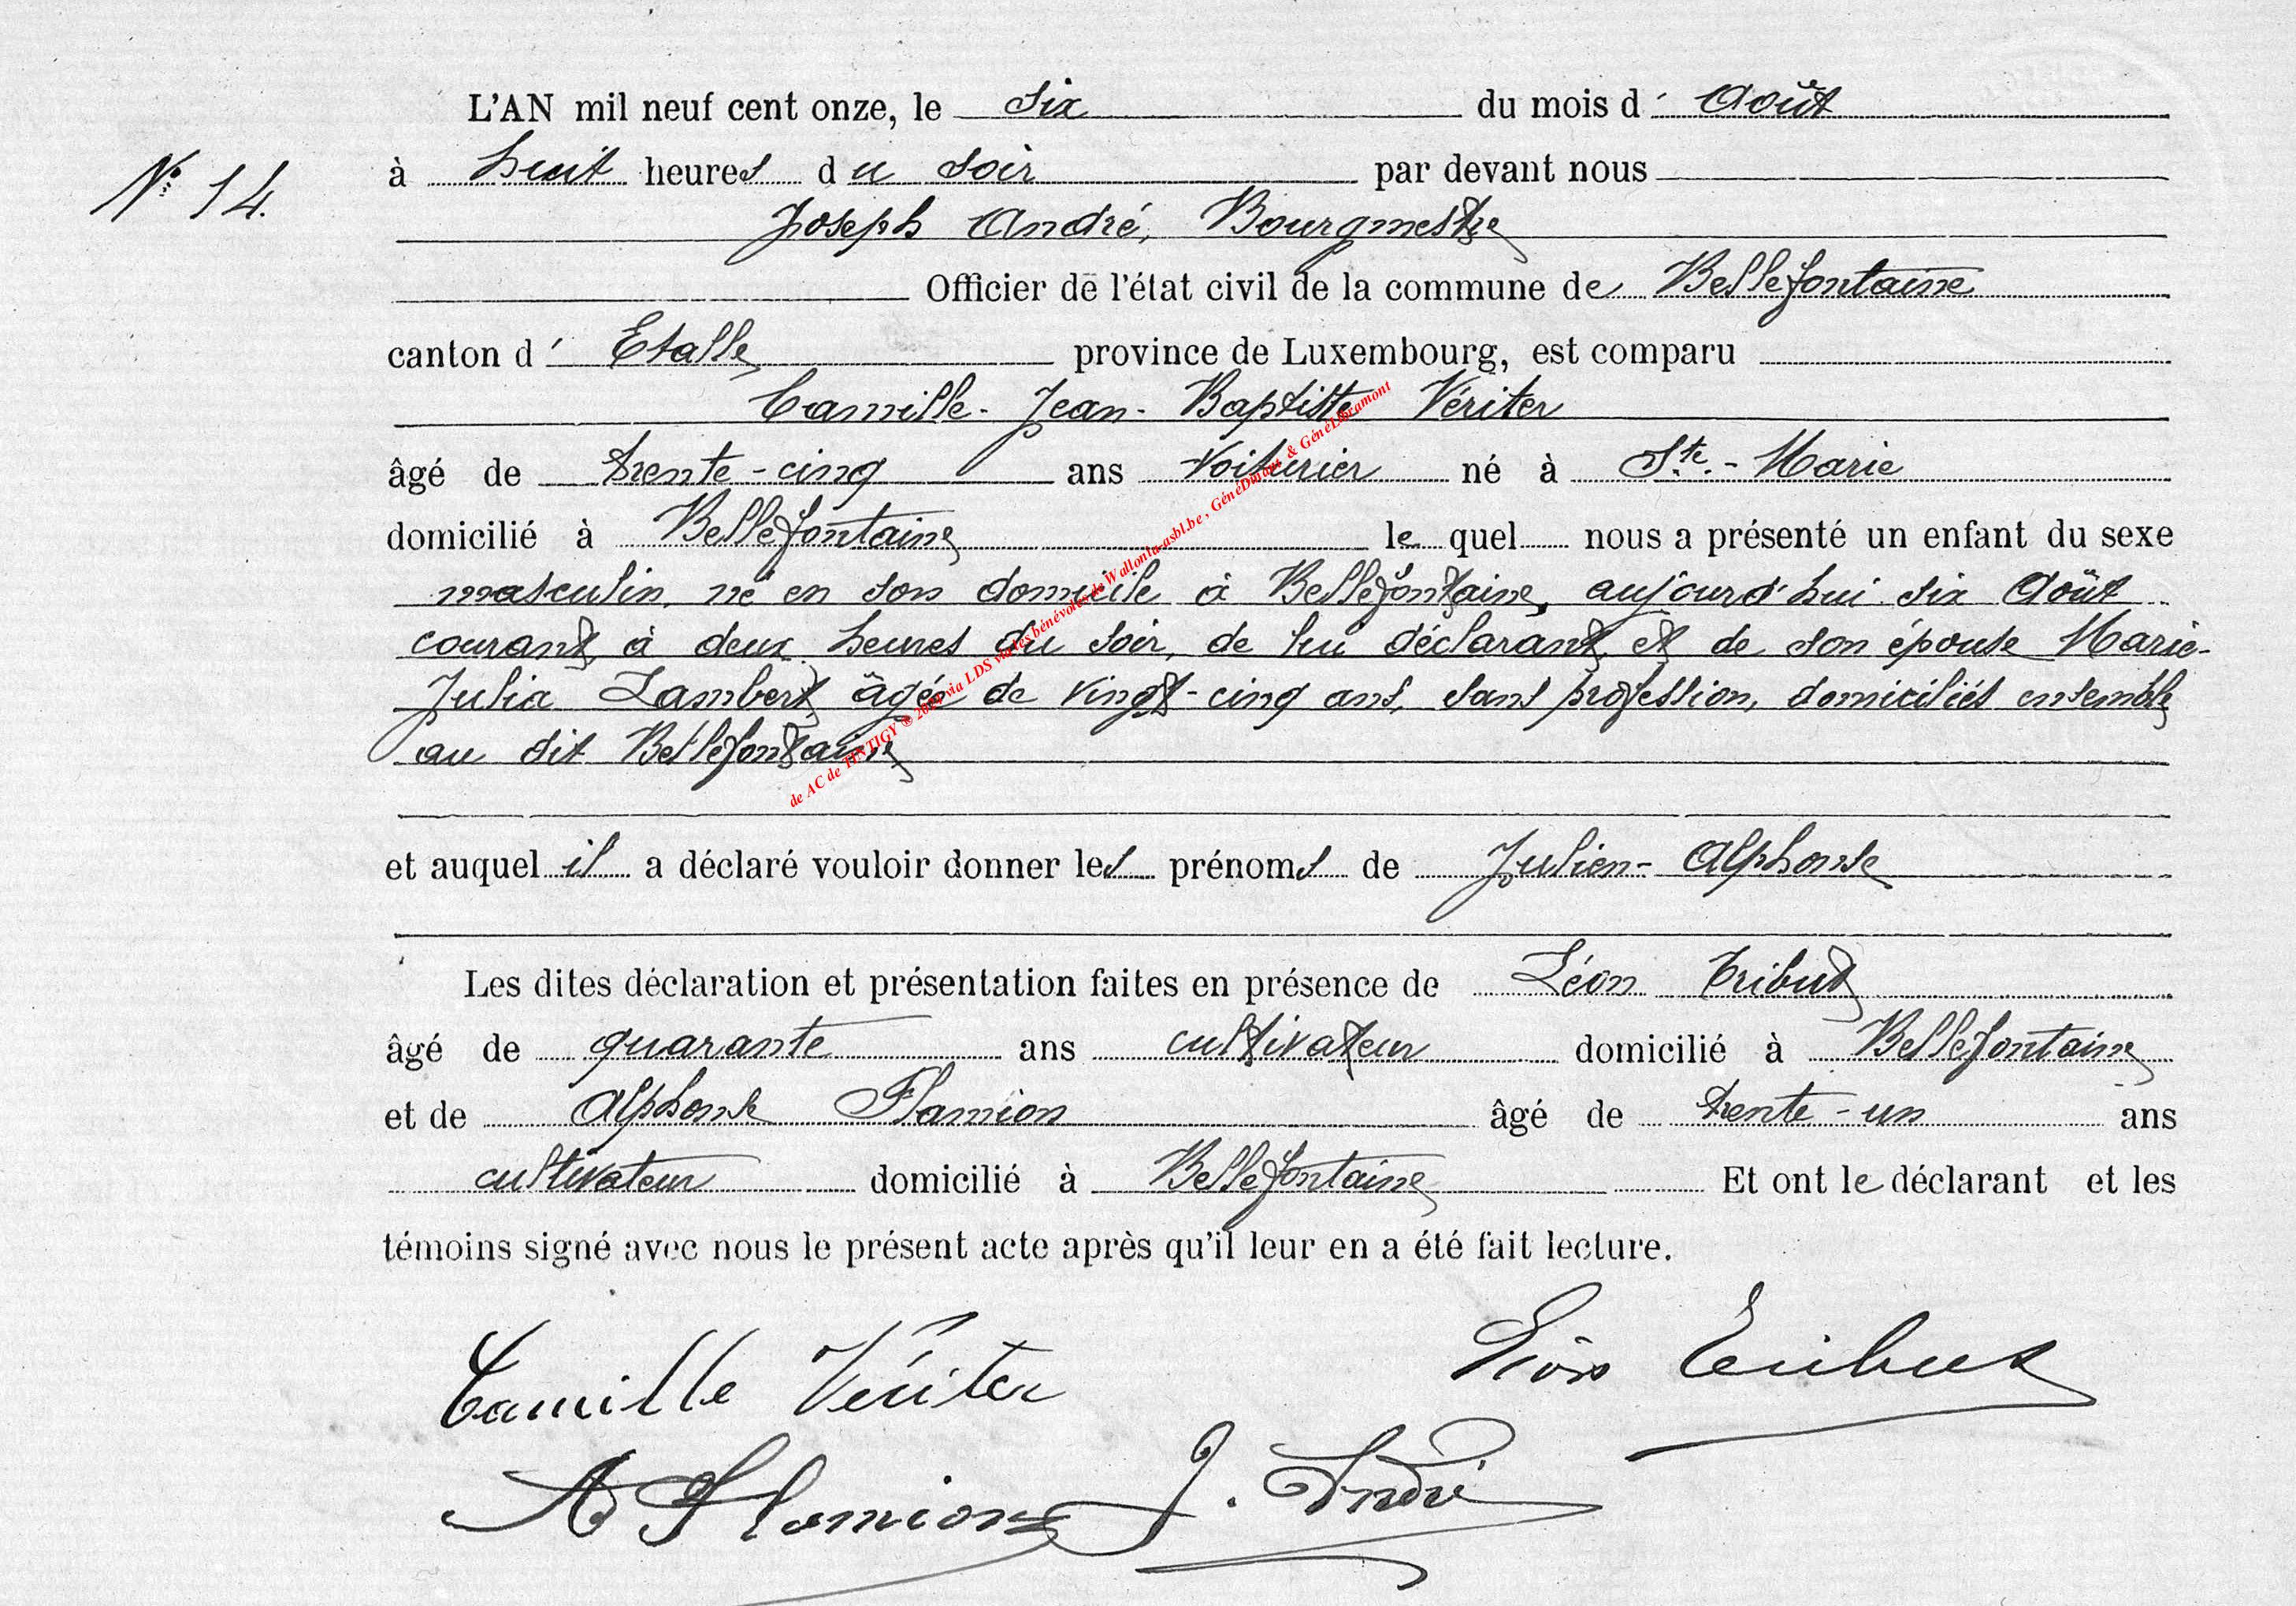 L'AN mil neuf cent onze, le six du mois d' Août
N° 14. à huit heures du soir par devant nous
Joseph André, Bourgmestre
Officier de l'état civil de la commune de Bellefontaine
canton d' Etalle province de Luxembourg, est comparu
Camille-Jean-Baptiste Vériter
âgé de trente-cinq ans Voiturier né à Ste-Marie
domicilié à Bellefontaine lequel nous a présenté un enfant du sexe
masculin, né en son domicile à Bellefontaine, aujourd'hui six Août
courant, à deux heures du soir, de lui déclarant et de son épouse Marie-
Julia Lambert, âgée de vingt-cinq ans, sans profession, domiciliés ensemble
au dit Bellefontaine
et auquel il a déclaré vouloir donner les prénoms de Julien-Alphonse
Les dites déclaration et présentation faites en présence de Léon Tribut
âgé de quarante ans cultivateur domicilié à Bellefontaine
et de Alphonse Flamion âgé de trente-un ans
cultivateur domicilié à Bellefontaine Et ont le déclarant et les
témoins signé avec nous le présent acte après qu'il leur en a été fait lecture.
Camille Vériter Léon Tribut
A Flamion J. André
de AC de TINTIGY ® 2024 via LDS via les bénévoles de Wallonia-asbl.be, GénéDinant & GénéLibramont